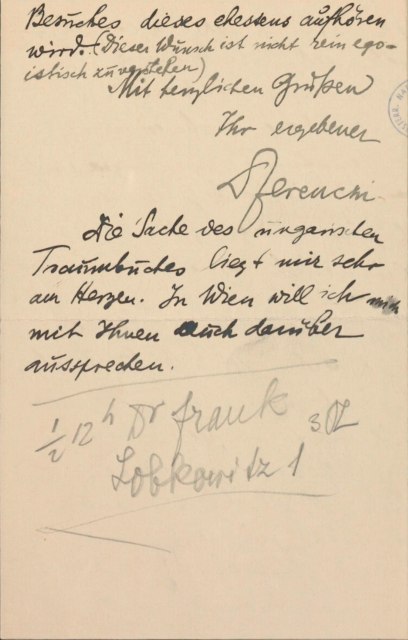 Besuches dieses ehestens aufhören
wird. (Dieser Wunsch ist nicht rein ego-
istisch zu verstehen)
Mit herzlichen Grüßen
Ihr ergebener
Ferenczi
Die Sache des ungarischen
Traumbuches liegt mir sehr
am Herzen. In Wien will ich mich
mit Ihnen auch darüber
aussprechen.
½ 12 h Dr Frank
Lobkowitz 1